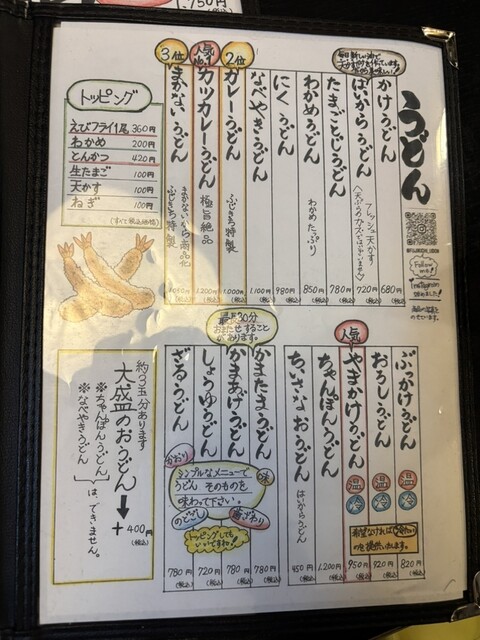 うどん
毎日新しい油で
かけうどん
680円
(税込)
はいからうどん
フレッシュ天かす
720円
(税込)
たまごとじうどん
780円
(税込)
わかめうどん
わかめたっぷり
850円
(税込)
にくうどん
980円
(税込)
なべやきうどん
1,100円
(税込)
2位
カレーうどん
ふじきち特製
1,000円
(税込)
人気
カツカレーうどん
極旨絶品
1,200円
(税込)
3位
まかないうどん
まかないから商品化
ふじきち特製
(税込)
トッピング
えびフライ1尾 360円
わかめ 200円
とんかつ 420円
生たまご 100円
天かす 100円
ねぎ 100円
(すべて税込価格)
Follow me!
Instagram
始めました!
ぶっかけうどん
温
冷
820円
(税込)
おろしうどん
温
冷
920円
(税込)
人気
やまかけうどん
温
冷
950円
(税込)
希望なければ冷たい
のを提供いたします。
ちゃんぽんうどん
1,200円
(税込)
ちいさなおうどん
はいからうどん
450円
(税込)
最長30分
おまたせすること
があります。
かまたまうどん
780円
(税込)
かまあげうどん
780円
(税込)
しょうゆうどん
720円
(税込)
ざるうどん
780円
(税込)
かおり
味
シンプルなメニューで
うどんそのものを
味わって下さい。
のどごし
歯ざわり
トッピングしても
いいですね!
約3玉分あります
大盛のおうどん
+400円
(税込)
※ちゃんぽんうどん
※なべやきうどん
は、できません。